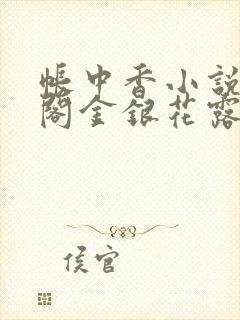 帳中香小說
閣金銀花露
侯官